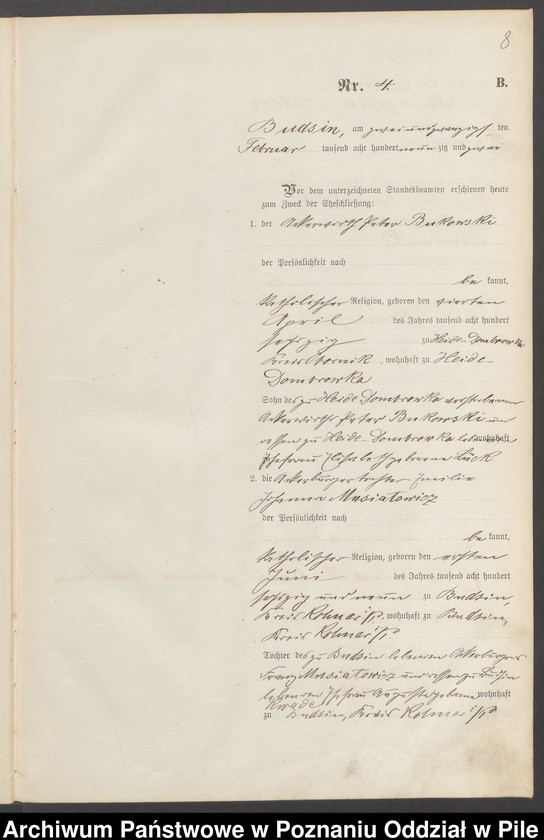 8
Nr. 4.
B.
Budsin, am zweiundzwanzigsten
Februar tausend acht hundert neunzig und zwei
Vor dem unterzeichneten Standesbeamten erschienen heute
zum Zweck der Eheschließung:
1. der Ackerwirth Peter Bukowski
der Persönlichkeit nach
be kannt,
katholischer Religion, geboren den vierten
April des Jahres tausend acht hundert
sechszig zu Heide-Dombrowka
Kreis Obornik, wohnhaft zu Heide-
Dombrowka
Sohn des zu Heide Dombrowka verstorbenen
Ackerwirths Peter Bukowski und
dessen zu Heide-Dombrowka lebenden wohnhaft
Ehefrau Elisabeth geborene Lück
2. die Ackerbürgertochter Emilie
Johanna Musiatowicz
der Persönlichkeit nach
be kannt,
katholischer Religion, geboren den ersten
Juni des Jahres tausend acht hundert
sechszig und neun zu Budsin,
Kreis Kolmar i/P., wohnhaft zu Budsin,
Kreis Kolmar i/P.
Tochter des zu Budsin lebenden Ackerbürgers
Franz Musiatowicz und dessen zu Budsin
lebenden Ehefrau Augusta geborene wohnhaft
Kwade
zu Budsin, Kreis Kolmar i/P.
Archiwum Państwowe w Poznaniu Oddział w Pile